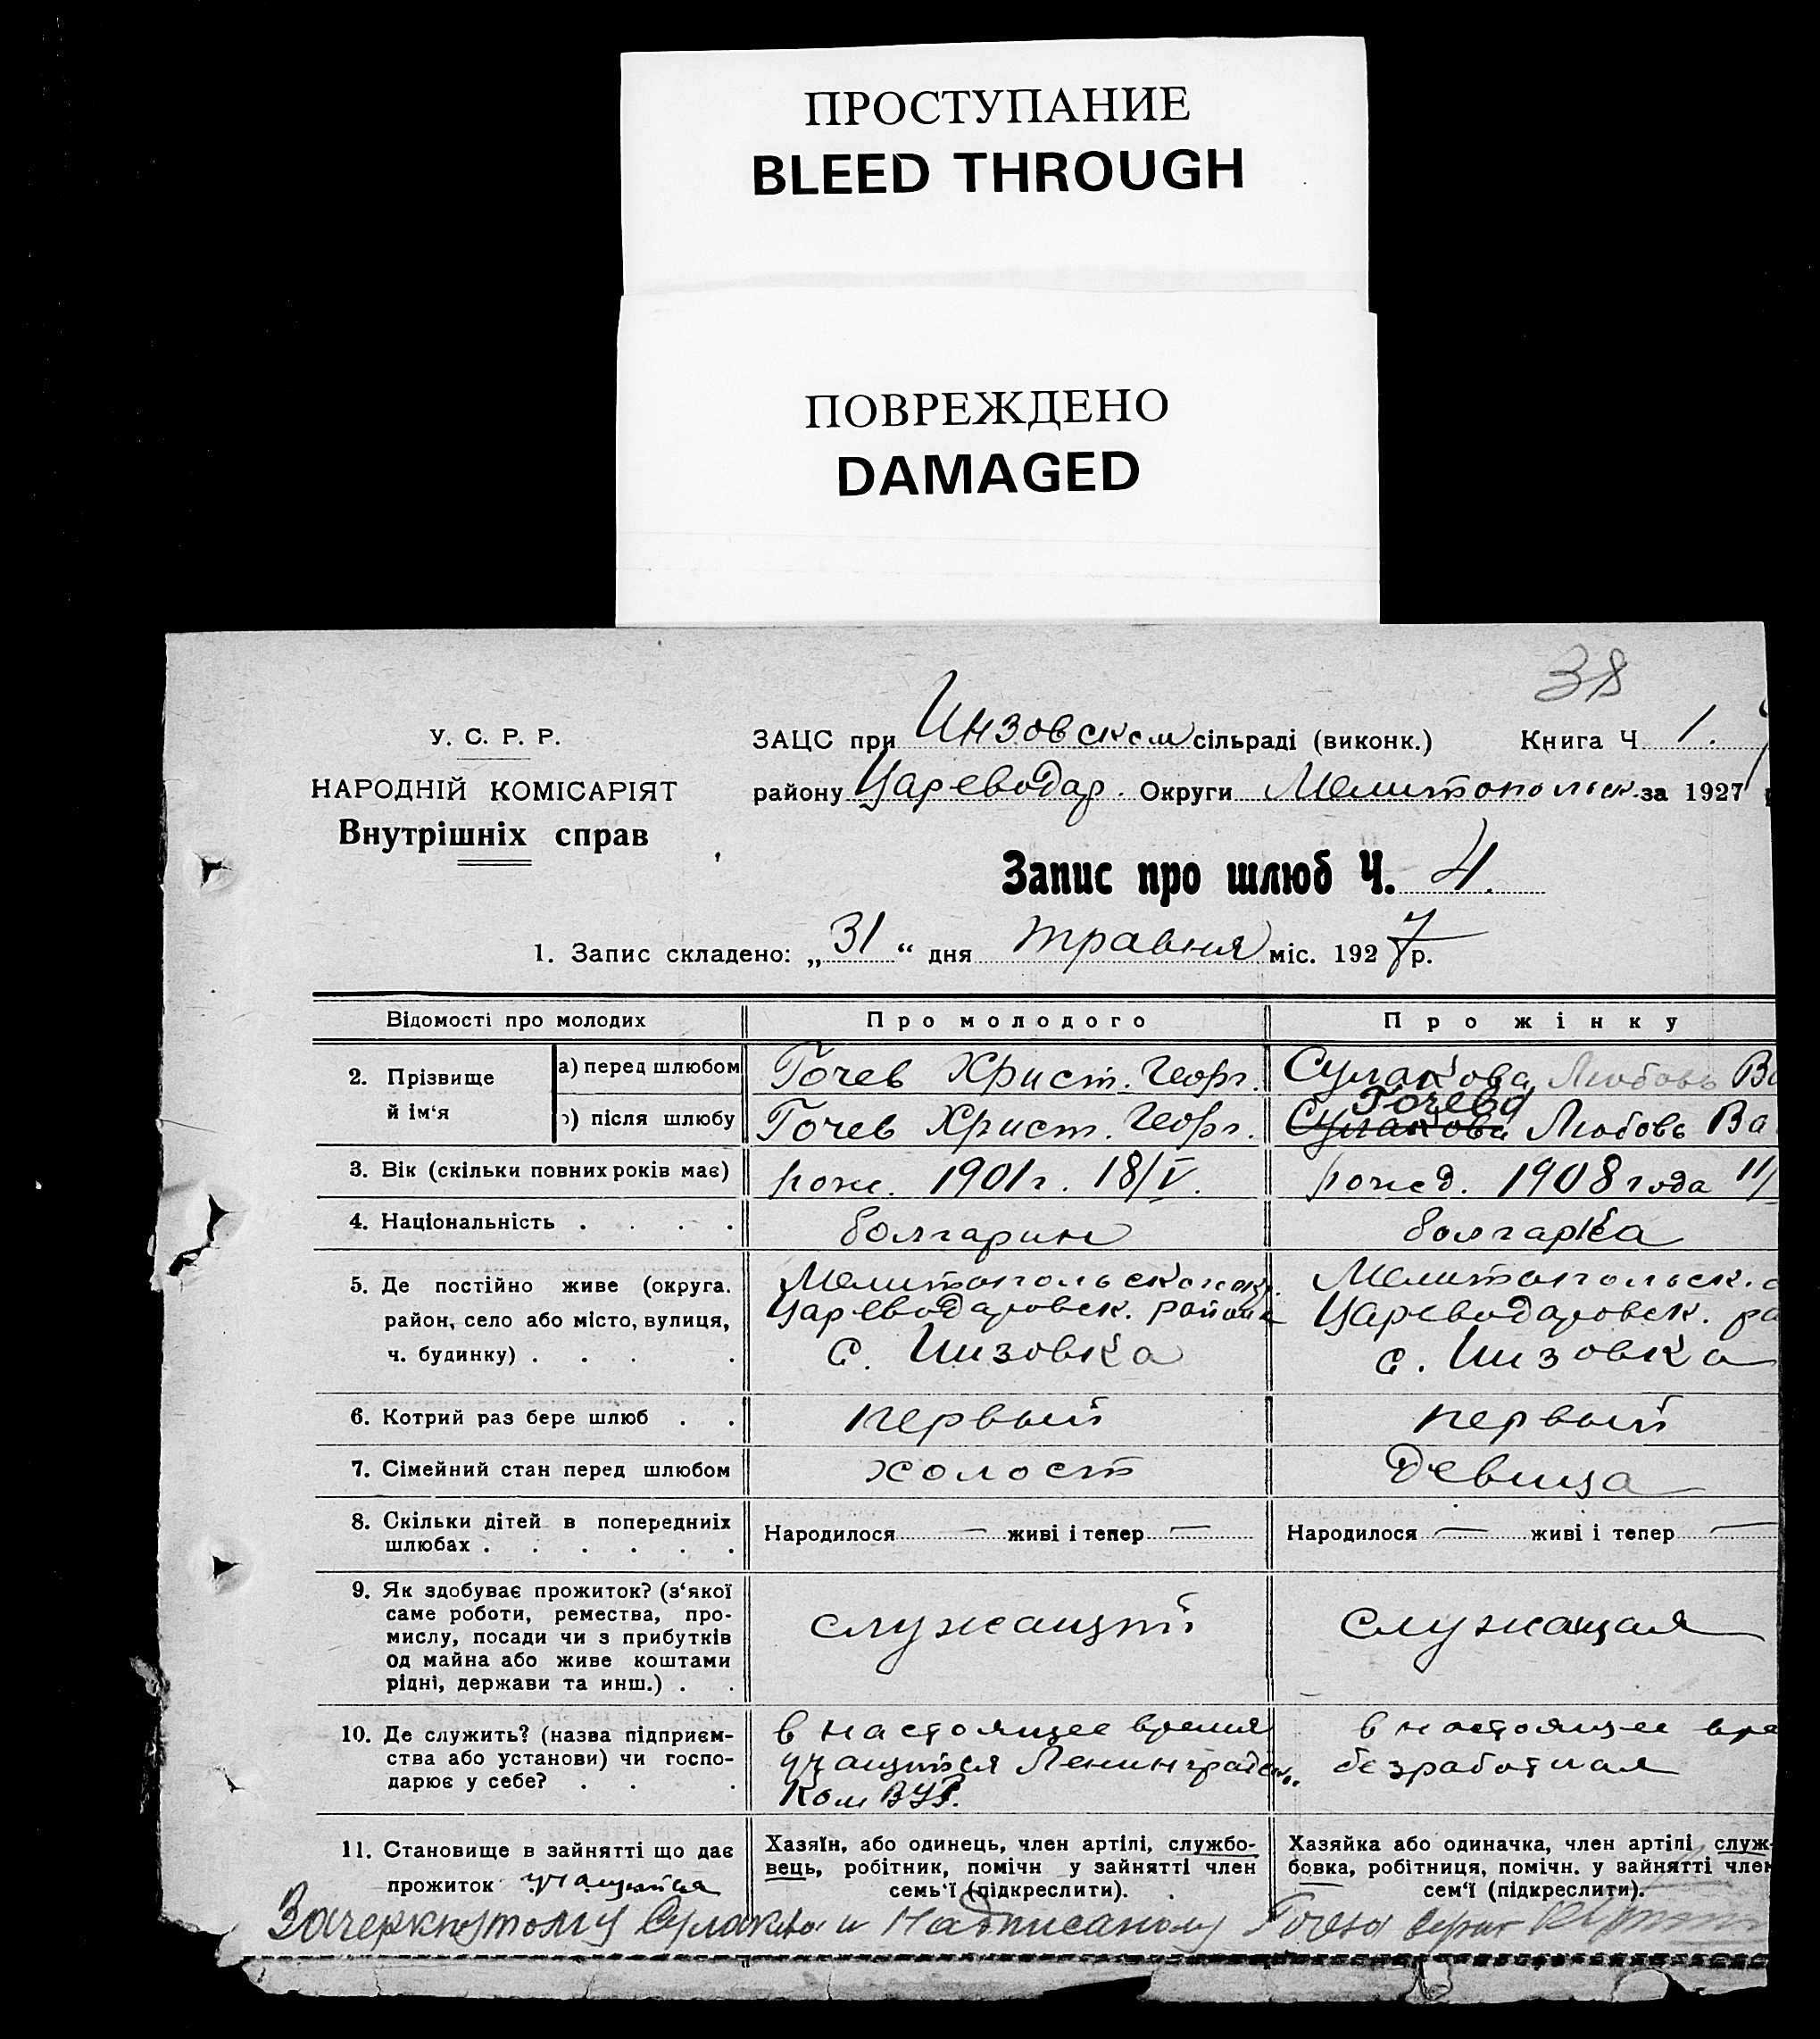 ПРОСТУПАНИЕ
BLEED THROUGH
ПОВРЕЖДЕНО
DAMAGED
38
У. С. Р. Р.
НАРОДНІЙ КОМІСАРІЯТ
Внутрішніх справ
ЗАЦС при Инзовском сільраді (виконк.) Книга Ч 1.
району Цареводар. Округи Мелитопольск. за 1927
Запис про шлюб Ч. 4.
1. Запис складено: „31“ дня травня міс. 1927 р.
Відомості про молодих Про молодого Про жінку
2. Прізвище й ім‘я
а) перед шлюбом Гочев Христ. Георг. Сулакова Любовь Ва
) після шлюбу Гочев Христ. Георг. Сулакова Гочева Любовь Ва
3. Вік (скільки повних років має) рож. 1901 г. 18/V. рожд. 1908 года 11/
4. Національність . . . . болгарин болгарка
5. Де постійно живе (округа. Мелитопольск. окр. Мелитопольск. о
район, село або місто, вулиця, Цареводаровск. района Цареводаровск. ра
ч. будинку) . . . . с. Инзовка с. Инзовка
6. Котрий раз бере шлюб . . первый первый
7. Сімейний стан перед шлюбом холост девица
8. Скільки дітей в попередниіх
шлюбах . . . . . . Народилося — живі і тепер — Народилося — живі і тепер —
9. Як здобуває прожиток? (з‘якої
саме роботи, ремества, про-
мислу, посади чи з прибутків служащий служащая
од майна або живе коштами
рідні, держави та инш.) . .
10. Де служить? (назва підприєм- в настоящее время в настоящее вре
ства або установи) чи госпо- учащийся Ленинградск. безработная
дарює у себе? . . . Ком ВУЗ.
11. Становище в зайнятті що дає
прожиток учащийся
Хазяїн, або одинець, член артілі, службо-
вець, робітник, помічн у зайнятті член
семь‘ї (підкреслити).
Хазяйка або одиначка, член артілі служ-
бовка, робітниця, помічн. у зайнятті член
сем‘ї (підкреслити).
Зачеркнутому Сулакова и Надписаному Гочева верит